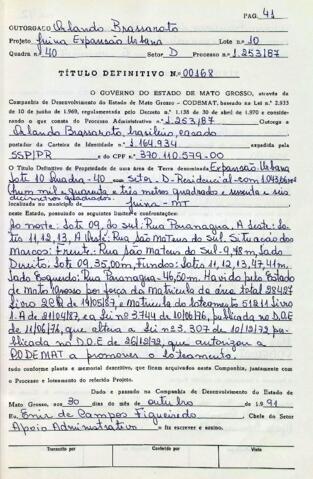 PAG. 41
OUTORGADO Orlando Brassaroto
Projeto, Juina Expansão Urbana Lote n.o 10
Quadra n.o 40 Setor, D Processo n.o 1.253187
TÍTULO DEFINITIVO N.o 00168
O GOVERNO DO ESTADO DE MATO GROSSO, através da
Companhia de Desenvolvimento do Estado de Mato Grosso - CODEMAT, baseado na Lei n.o 2.933
de 10 de junho de 1.969, regulamentada pelo Decreto n.o 1.138 de 30 de abril de 1.970 e considerando
o que consta do Processo Administrativo n.o 1.253187 Outorga a
Orlando Brassaroto, brasileiro, casado
portador da Carteira de Identidade n.o 1.164.934 expedida pela
SSP/PR e do CPF n.o 370.110.579-00
O Título Definitivo de Propriedade de uma área de Terra denominada Expansão Urbana
Lote 10 Quadra-40 - Setor - D-Residencial - com
(hum mil e quarenta e três metros quadrados e sessenta e seis
decímetros quadrados.
localizada no município de Juina - MT
neste Estado, possuindo os seguintes limites e confrontações:
Ao norte: Lote 09, do sul: Rua Paranagua, A Leste: Lo-
tes 11, 12, 13, A Oeste: Rua São Mateus do Sul. Situação dos
Marcos: Frente: Rua São Mateus do Sul- 9,48m, Lado
Direito: Lote 09, 35,00m, Fundos: Lotes 11, 12, 13, 47,44m,
Lado Esquerdo: Rua Paranagua- 46,50m. Havido pelo Estado
de Mato Grosso por força da Matrícula da área total 28427
Livro 2CR de 19/05/87, e Matrícula do loteamento 51811 Livro
1.A de 21/04/87, e a Lei nº 3744 de 10/06/76, publicada no D.O.E
de 11/06/76, que altera a Lei nº 3.307 de 10/12/72 pu-
blicada no D.O.E de 26/12/72, que autorizou a
CODEMAT a promover o loteamento.
tudo conforme planta e memorial descritivo, que ficam arquivados nesta Companhia, juntamente com
o Processo e loteamento do referido Projeto.
Dado e passado na Companhia de Desenvolvimento do Estado de
Mato Grosso, aos 30 dias do mês de outubro de 1.991
Eu, Enir de Campos Figueiredo, Chefe do Setor
Apoio Administrativo o fiz escrever e assino.
Transcrito por Conferido por Visto